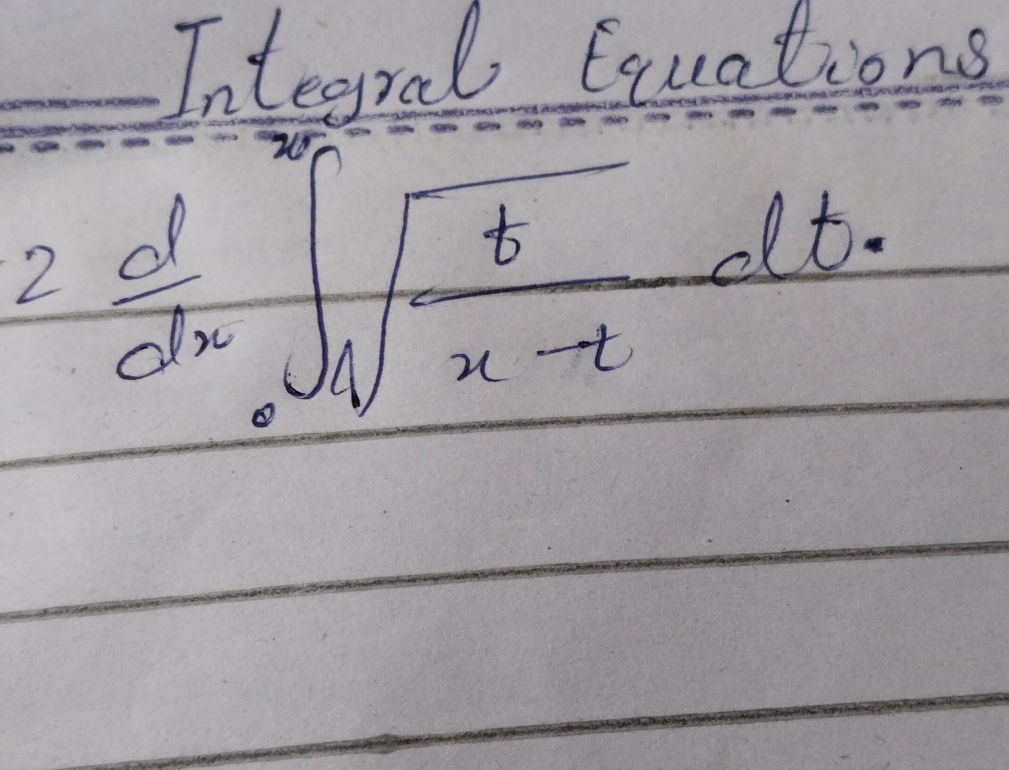 Integral Equations
2 d/dx ∫₀ˣ √(t/(x-t)) dt.